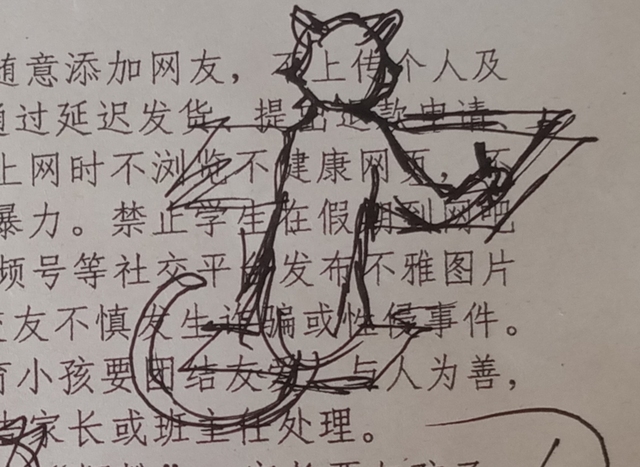 随意添加网友，不上传个人及
通过延迟发货、提出退款申请
上网时不浏览不健康网页，不
暴力。禁止学生在假期到网吧
频号等社交平台发布不雅图片
交友不慎发生诈骗或性侵事件。
育小孩要团结友爱，与人为善，
家长或班主任处理。